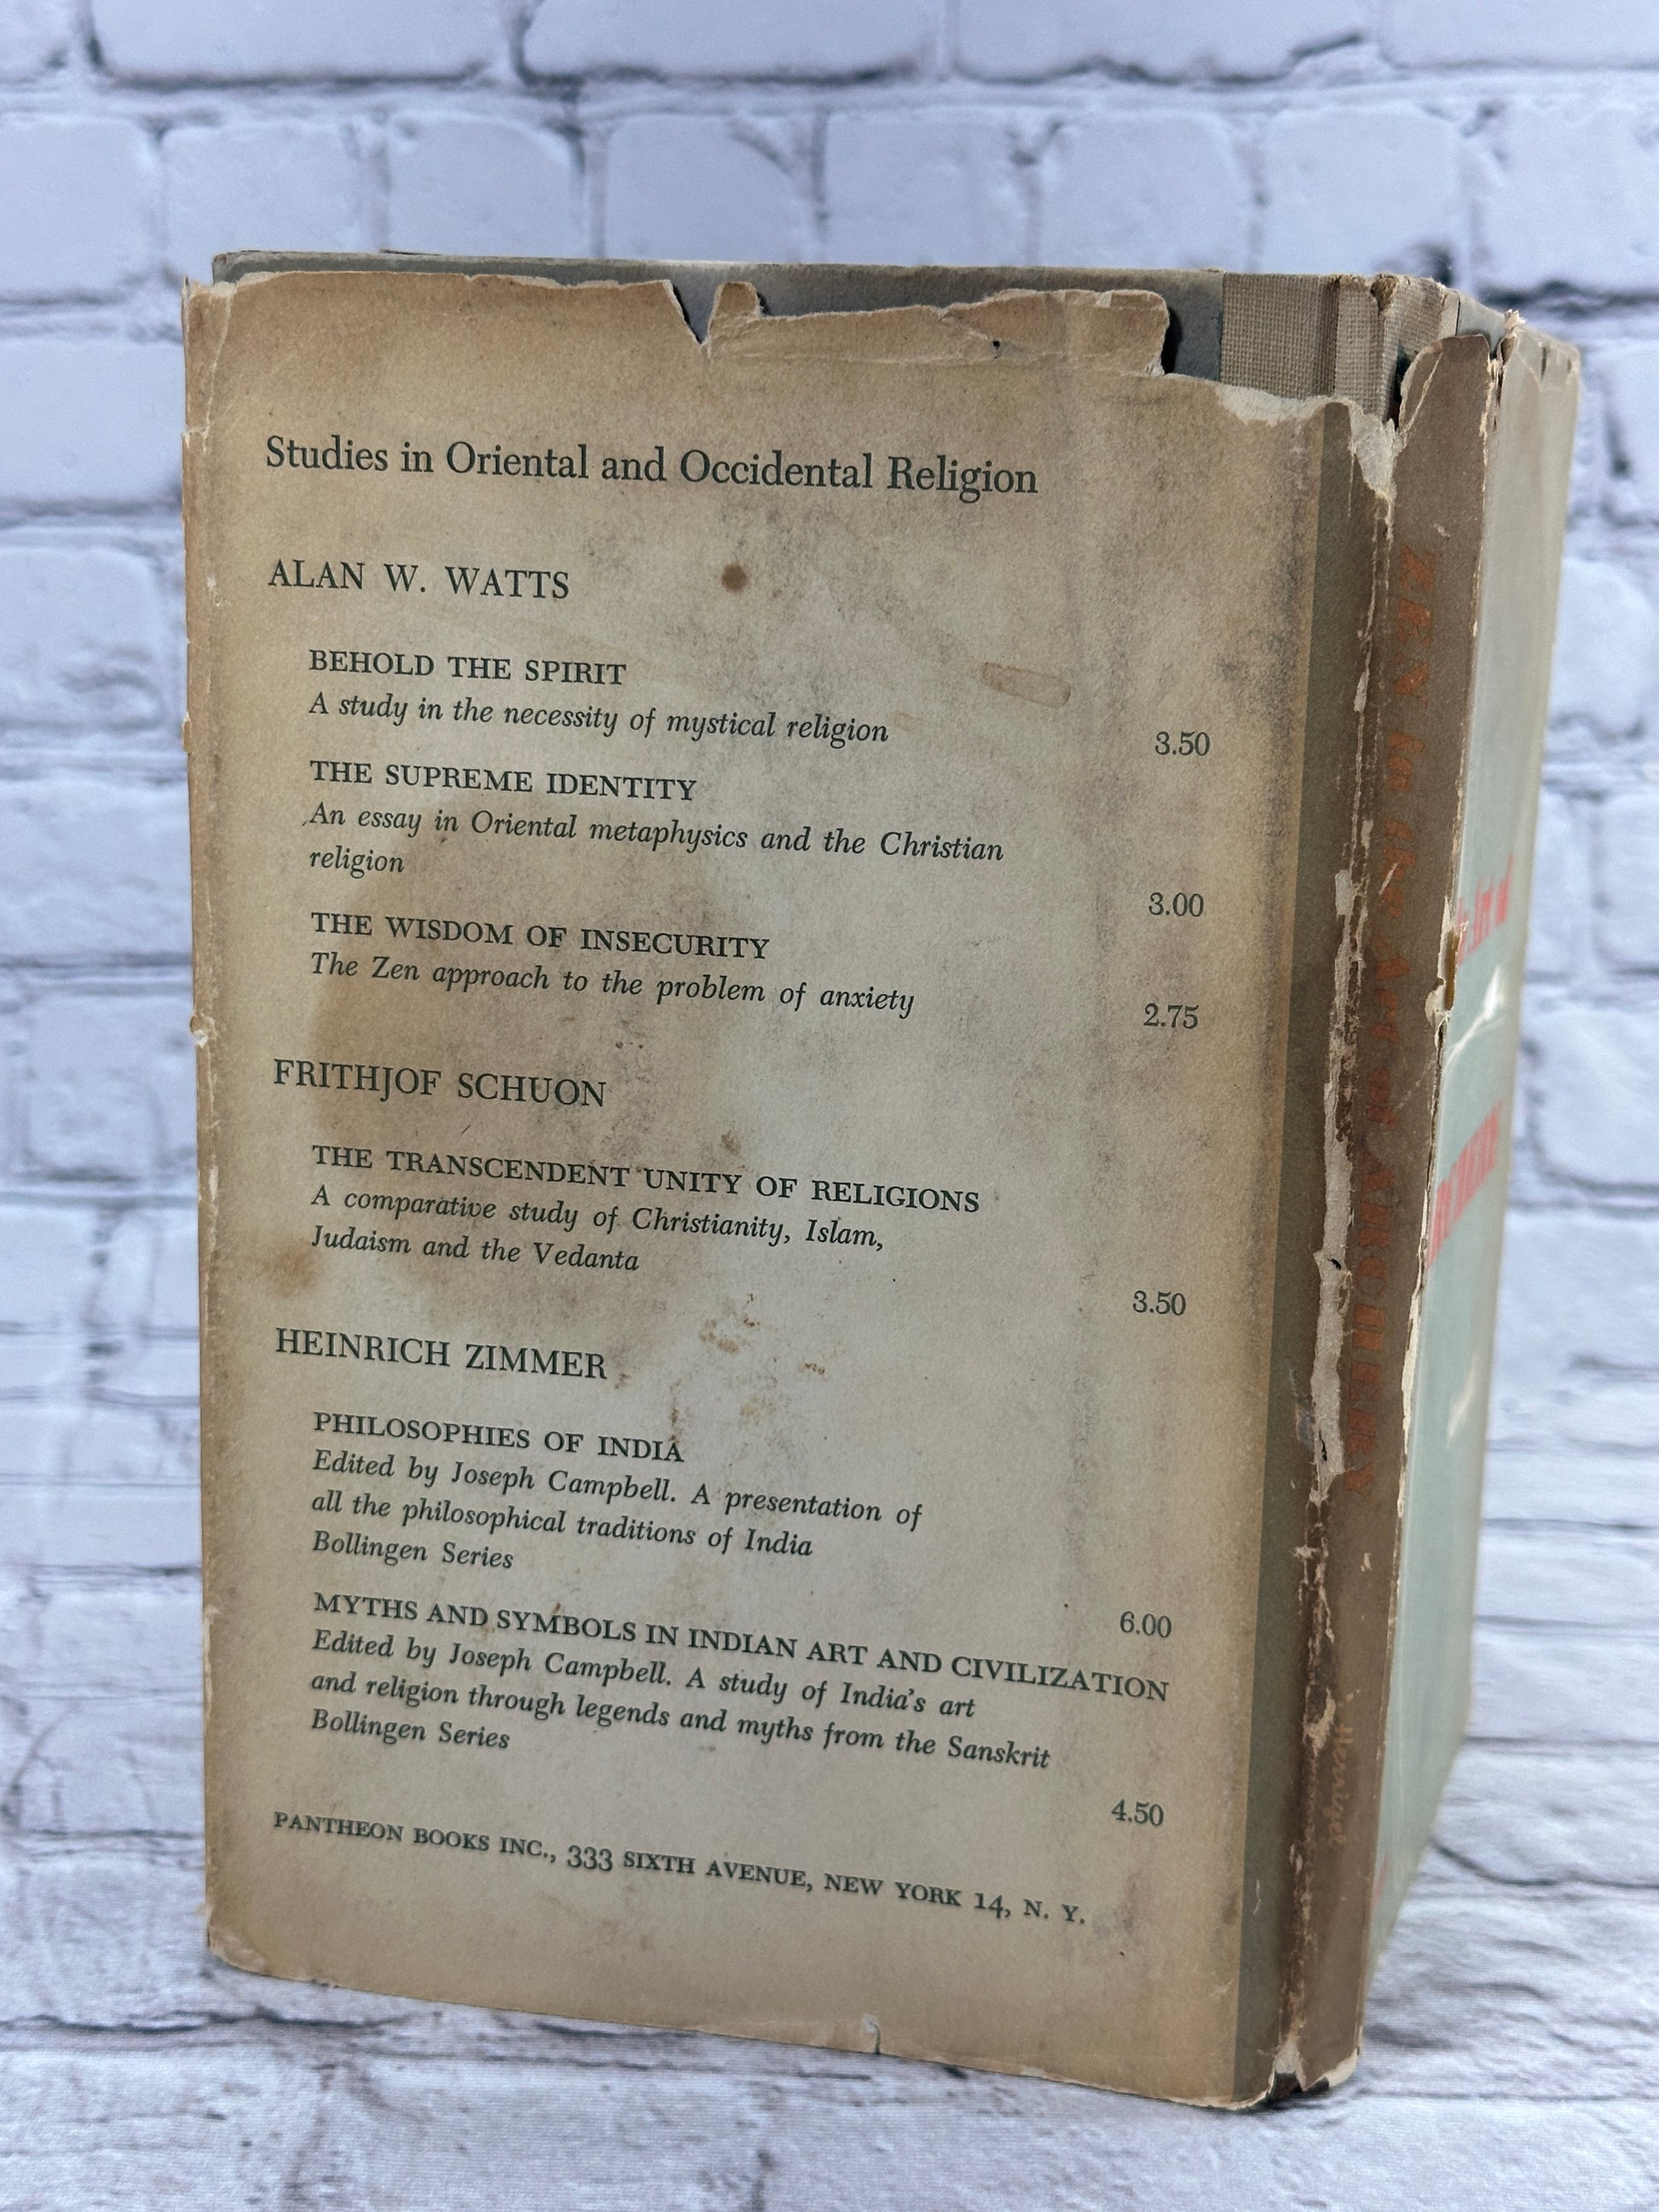 Studies in Oriental and Occidental Religion
ALAN W. WATTS
BEHOLD THE SPIRIT
A study in the necessity of mystical religion 3.50
THE SUPREME IDENTITY
An essay in Oriental metaphysics and the Christian
religion 3.00
THE WISDOM OF INSECURITY
The Zen approach to the problem of anxiety 2.75
FRITHJOF SCHUON
THE TRANSCENDENT UNITY OF RELIGIONS
A comparative study of Christianity, Islam,
Judaism and the Vedanta 3.50
HEINRICH ZIMMER
PHILOSOPHIES OF INDIA
Edited by Joseph Campbell. A presentation of
all the philosophical traditions of India
Bollingen Series 6.00
MYTHS AND SYMBOLS IN INDIAN ART AND CIVILIZATION
Edited by Joseph Campbell. A study of India's art
and religion through legends and myths from the Sanskrit
Bollingen Series 4.50
PANTHEON BOOKS INC., 333 SIXTH AVENUE, NEW YORK 14, N. Y.
ZEN in the Art of ARCHERY
Herrigel